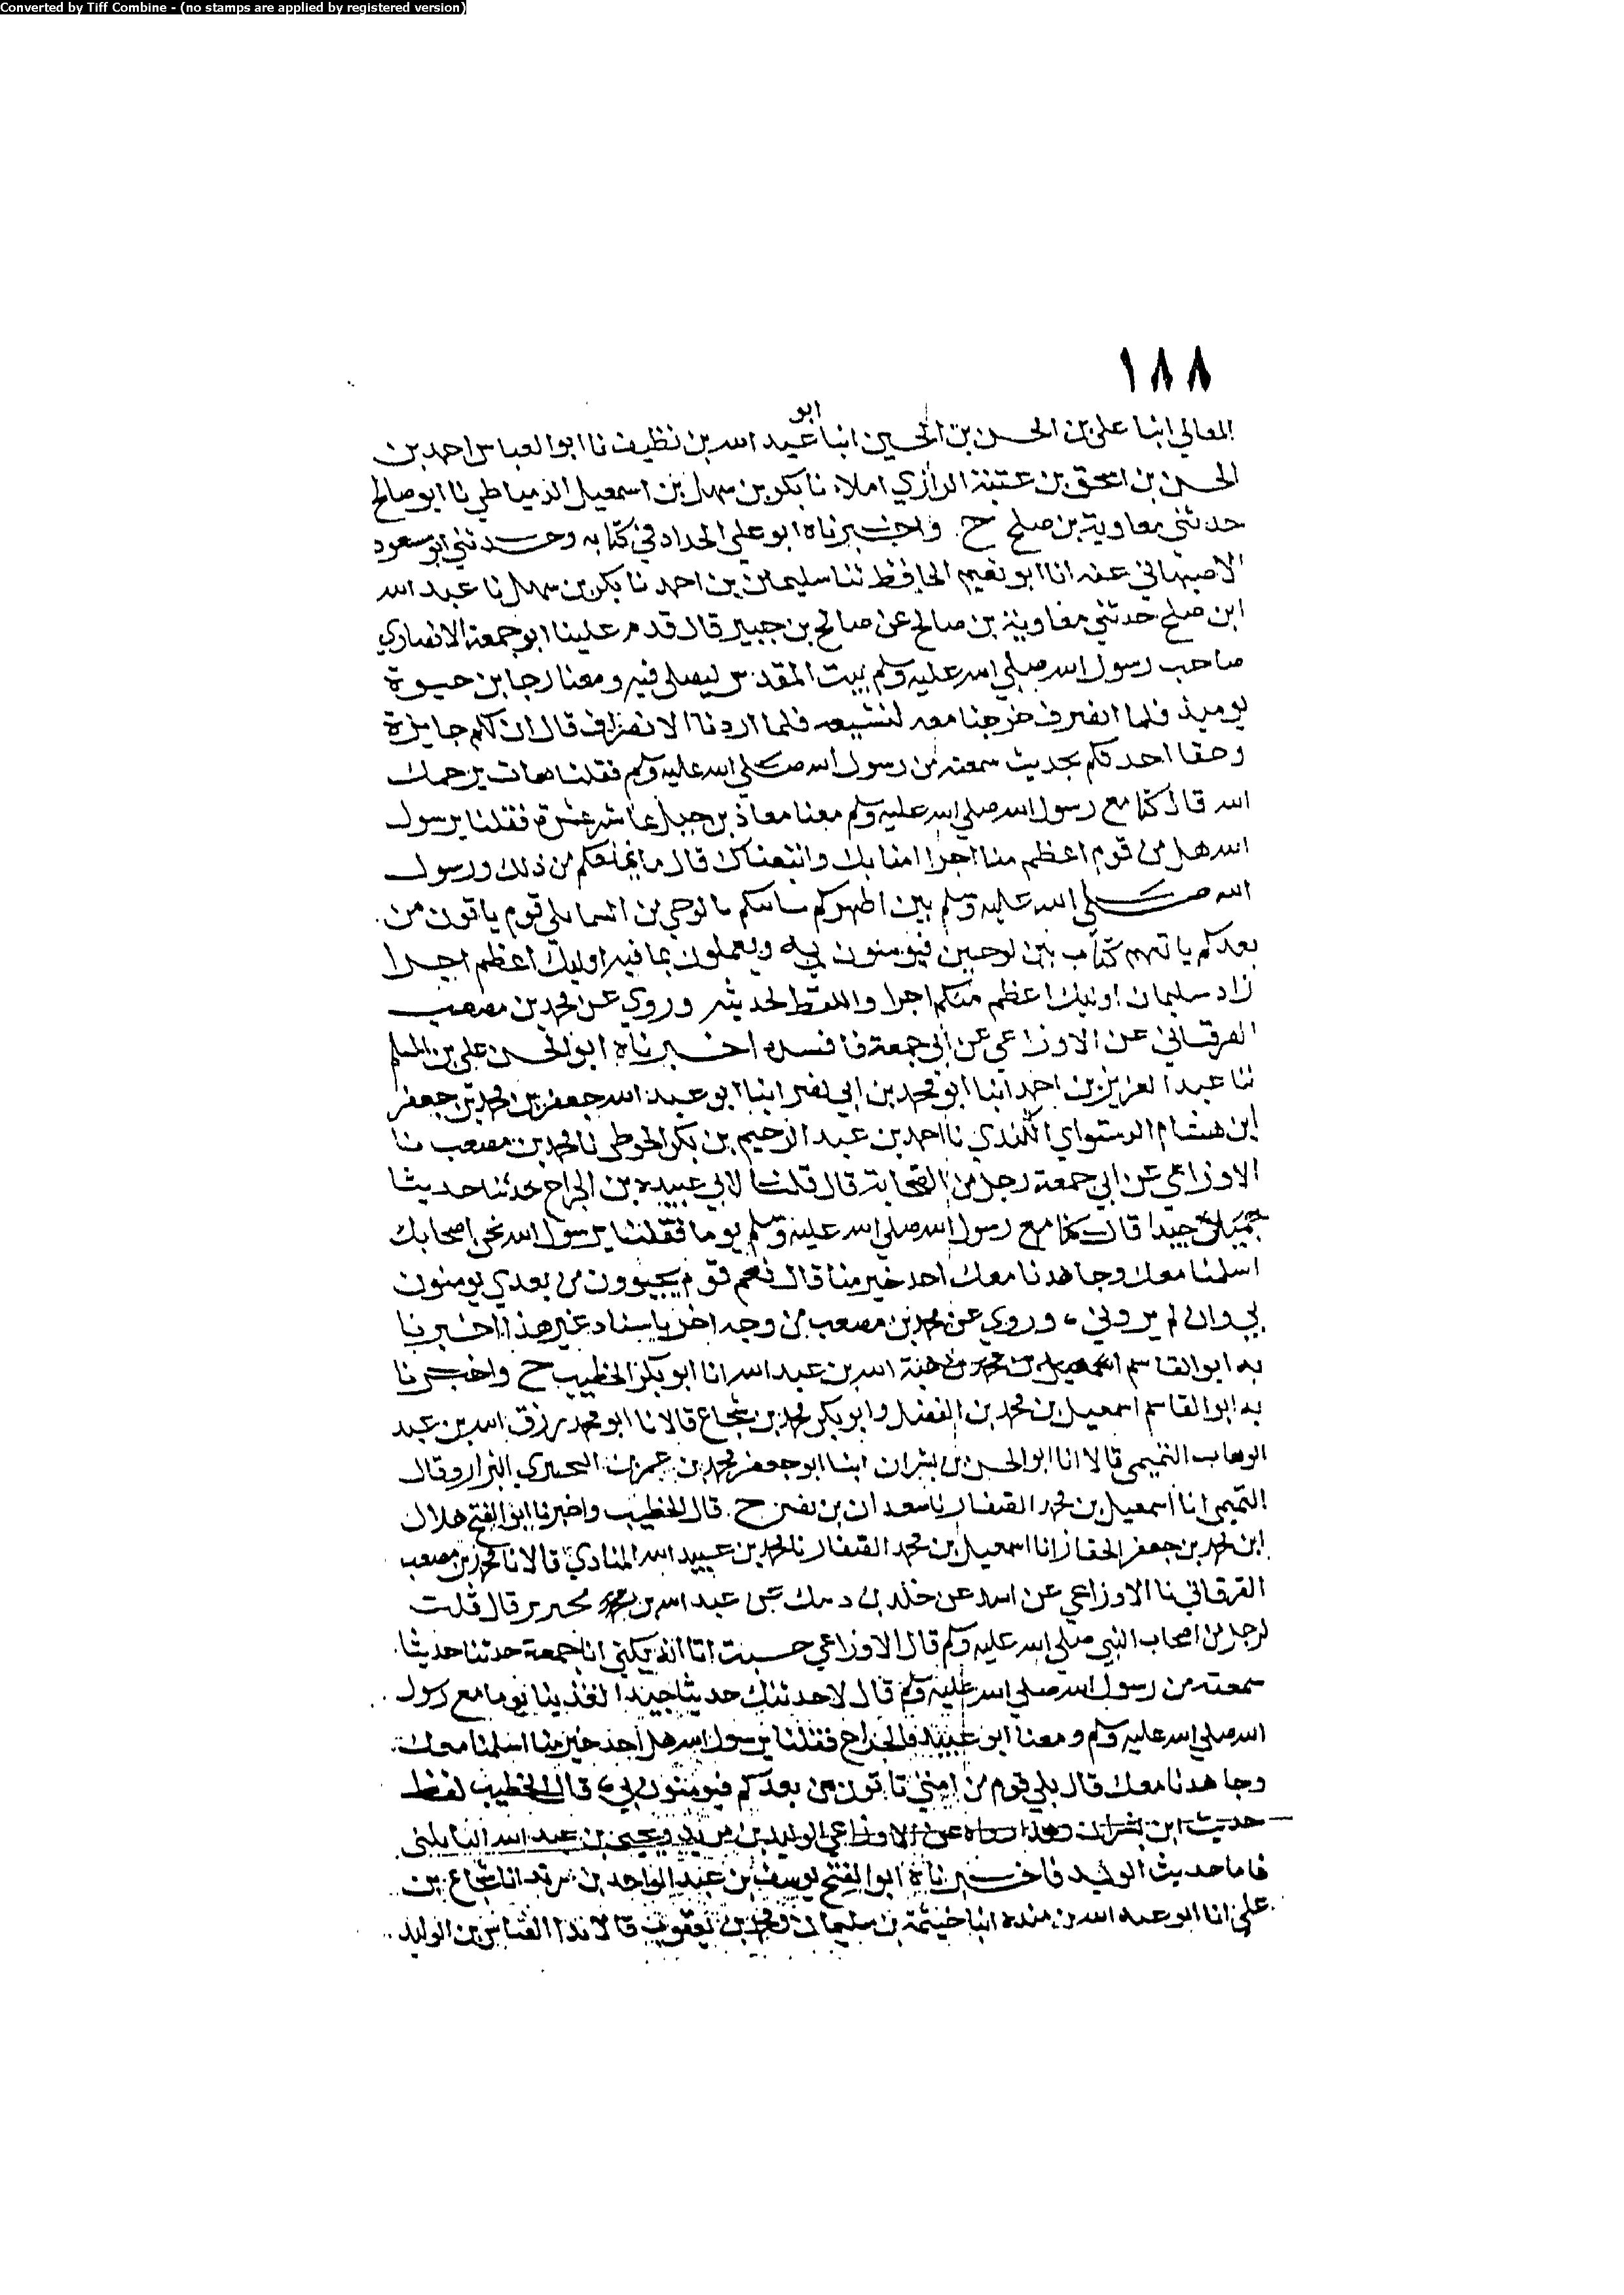 Converted by Tiff Combine - (no stamps are applied by registered version)
١٨٨
المعالي ابنا على بن الحسن بن الحسين ابنا ابو عبد الله بن نظيف نا ابو العباس احمد بن
الحسن بن اسحق بن عتبة الرازي املاء نا بكر بن سهل بن اسمعيل الدمياطي نا ابو صالح
حدثني معاوية بن صلح ح واخبرناه ابو علي الحداد في كتابه وحدثني ابو مسعود
الاصبهاني عنه انا ابو نعيم الحافظ ثنا سليمان بن احمد نا بكر بن سهل نا عبد الله
ابن صلح حدثني معاوية بن صالح عن صالح بن جبير قال قدم علينا ابو جمعة الانصاري
صاحب رسول الله صلى الله عليه وسلم ببيت المقدس ليصلي فيه ومعنا رجا بن حيوة
يوميذ فلما انصرف خرجنا معه لنشيعه فلما اردنا الانصراف قال ان لكم جايزة
وحقا احدثكم بحديث سمعته من رسول الله صلى الله عليه وسلم فقلنا هات يرحمك
الله قال كنا مع رسول الله صلى الله عليه وسلم معنا معاذ بن جبل عاشر عشرة فقلنا يرسول
الله هل من قوم اعظم منا اجرا امنا بك واتبعناك قال ما يمنعكم من ذلك ورسول
الله صلى الله عليه وسلم بين اظهركم ياتيكم بالوحي من السما بلي قوم ياتون من
بعدكم ياتيهم كتاب بين لوحين فيومنون به ويعملون بما فيه اوليك اعظم اجرا
زاد سليمان اوليك اعظم منكم اجرا واللفظ لحديثه وروي عن محمد بن مصعب
القرقساني عن الاوزاعي عن ابي جمعة فافسده اخبرناه ابو الحسن علي بن المسلم
ثنا عبد العزيز بن احمد ابنا ابو محمد بن ابي نصر ابنا ابو عبد الله جعفر بن محمد بن جعفر
ابن هشام الكندي نا احمد بن عبد الرحيم بن بكر الحوطي نا محمد بن مصعب نا
الاوزاعي عن ابي جمعة رجل من الصحابة قال قلنا لابي عبيده بن الجراح حدثنا حديثا
جيدا قال كنا مع رسول الله صلى الله عليه وسلم يوما فقلنا يرسول الله نحن اصحابك
اسلمنا معك وجاهدنا معك احد خير منا قال نعم قوم يجيوون من بعدي يومنون
بي وان لم يروني، وروي عن محمد بن مصعب من وجه اخر باسناد غير هذا اخبرنا
به ابو القاسم هبة الله بن عبد الله انا ابو بكر الخطيب ح واخبرنا
به ابو القاسم اسمعيل بن محمد بن الفضل وابو بكر محمد بن شجاع قالا نا ابو محمد رزق الله بن عبد
الوهاب التميمي قالا انا ابو الحسن بن بشران ابنا ابو جعفر محمد بن عمرو بن البختري البزار وقال
التميمي انا اسمعيل بن محمد الصفار نا سعدان بن نصر ح. قال الخطيب واخبرنا ابو الفتح هلال
ابن محمد بن جعفر الحفار انا اسمعيل بن محمد الصفار نا محمد بن عبيد الله المنادي قالا نا محمد بن مصعب
القرقساني نا الاوزاعي عن اسد عن خلد بن دريك عن عبد الله بن محيريز قال قلت
لرجل من اصحاب النبي صلى الله عليه وسلم قال الاوزاعي حسبت انا انه يكنى ابا جمعة حدثنا حديثا
سمعته من رسول الله صلى الله عليه وسلم قال لاحدثنك حديثا جيدا تغدينا يوما مع رسول
الله صلى الله عليه وسلم ومعنا ابو عبيدة بن الجراح فقلنا يرسول الله هل احد خير منا اسلمنا معك
وجاهدنا معك قال بلي قوم من امتي ياتون من بعدكم فيومنون بي، قال الخطيب لفظ
حديث ابن بشران وهذا رواه عن الاوزاعي الوليد بن مزيد ويحيى بن عبد الله البابلتي
فاما حديث الوليد فاخبرناه ابو الفتح يوسف بن عبد الواحد بن انا شجاع بن
علي انا ابو عبد الله بن منده ابنا خيثمة بن سليمان ومحمد بن يعقوب قالا ثنا العباس بن الوليد